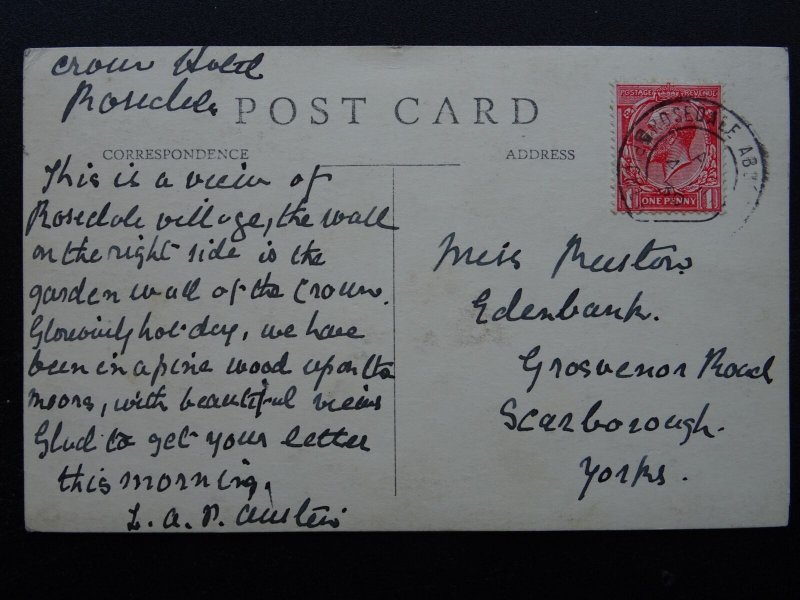 Crown Hotel
Rosedale
POST CARD
CORRESPONDENCE
ADDRESS
This is a view of
Rosedale village, the wall
on the right side is the
garden wall of the Crown.
Gloriously hot day, we have
been in a pine wood upon the
moors, with beautiful views
Glad to get your letter
this morning.
L. A. P. Austin
POSTAGE REVENUE
ONE PENNY
ROSEDALE ABBEY
Miss Ruston
Edenbank.
Grosvenor Road
Scarborough.
Yorks.